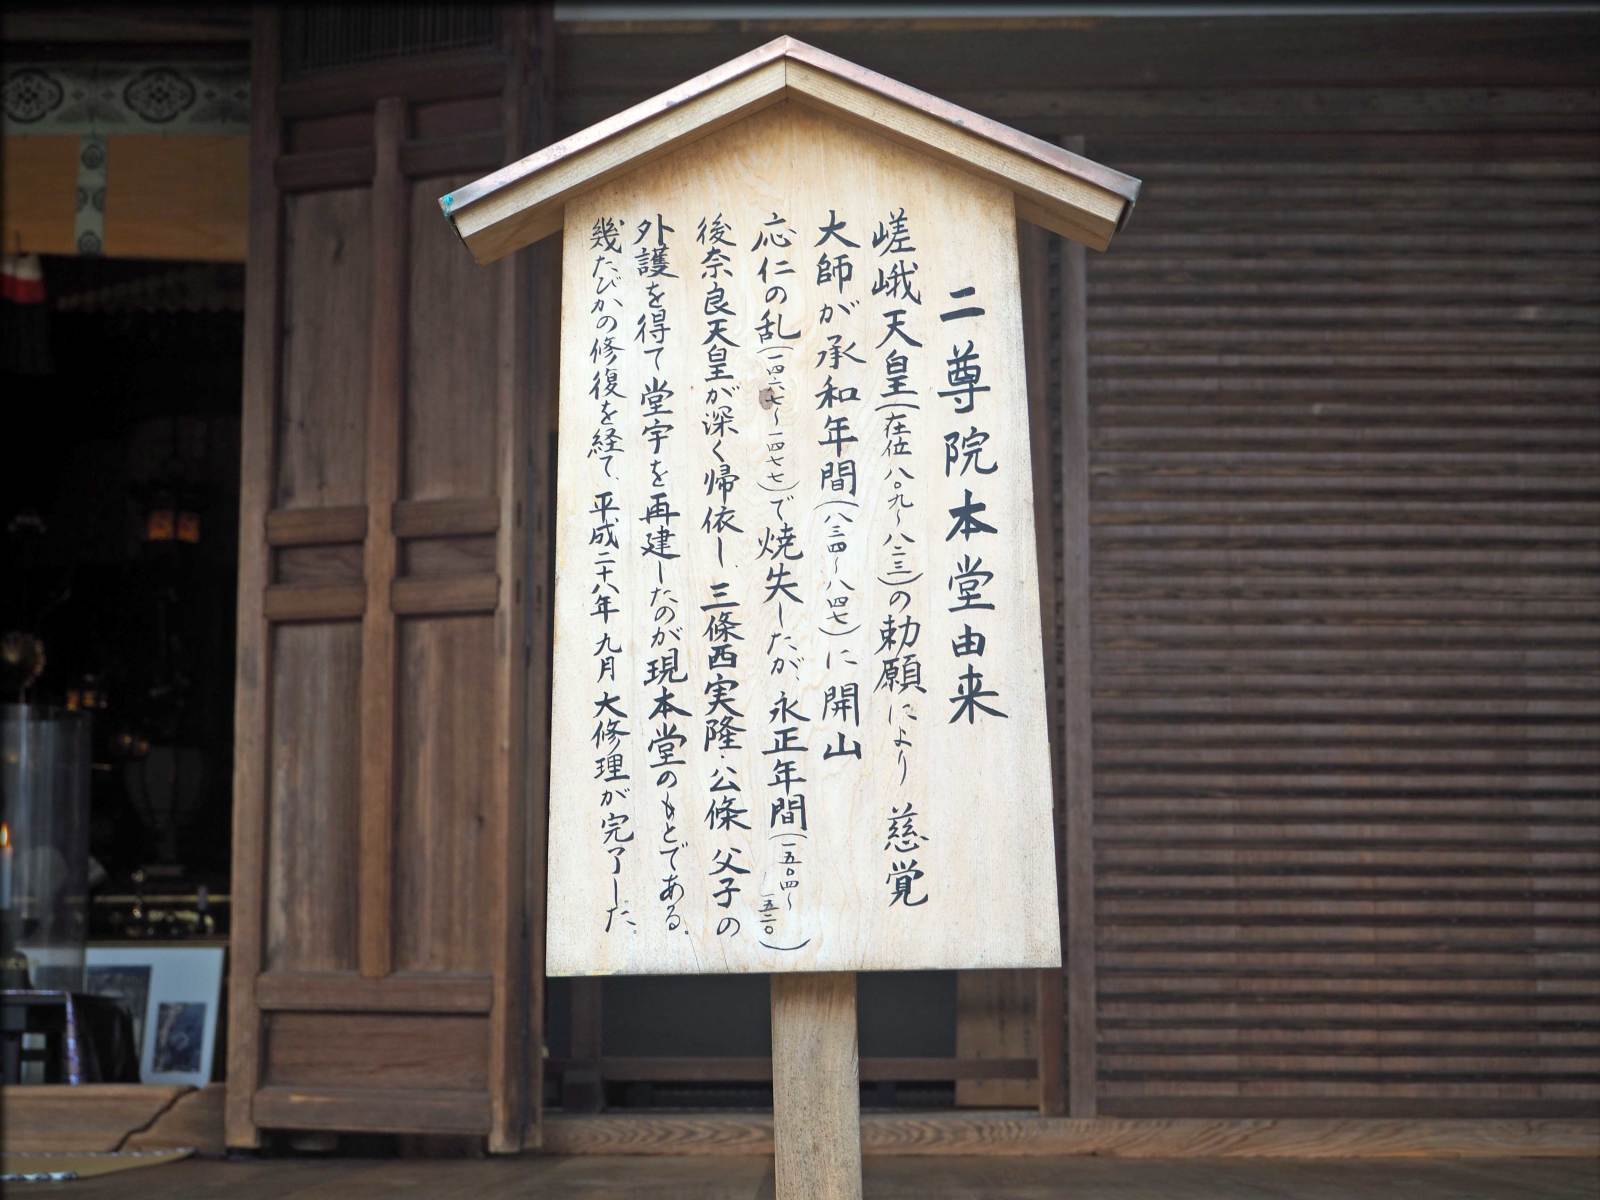 二尊院本堂由来
嵯峨天皇(在位八〇九〜八二三)の勅願により 慈覚
大師が承和年間(八三四〜八四七)に開山
応仁の乱(一四六七〜一四七七)で焼失したが、永正年間(一五〇四〜一五二〇)
後奈良天皇が深く帰依し、三條西実隆・公條 父子の
外護を得て堂宇を再建したのが現本堂のもとである。
幾たびかの修復を経て、平成二十八年 九月 大修理が完了した。